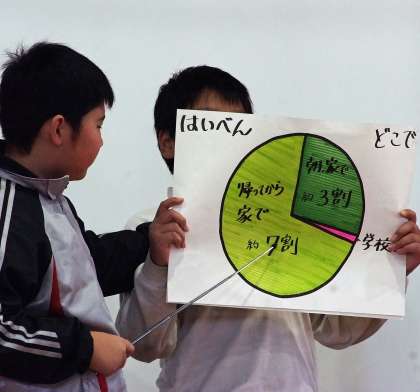 はいべん
どこで
朝、家で
約3割
帰ってから
家で
約7割
学校